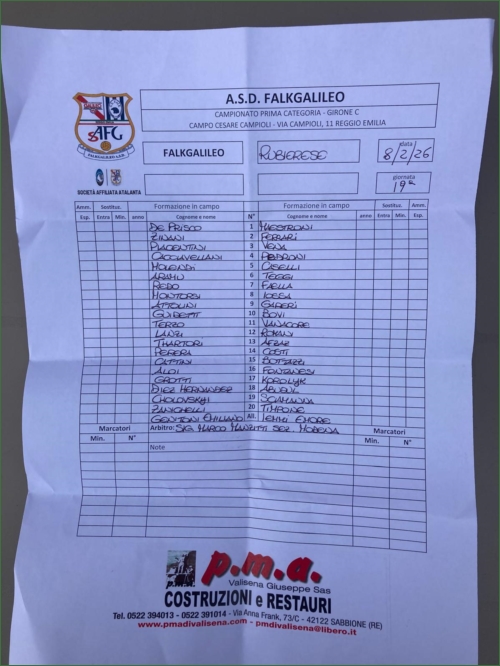 A.S.D. FALKGALILEO
CAMPIONATO PRIMA CATEGORIA - GIRONE C
CAMPO CESARE CAMPIOLI - VIA CAMPIOLI, 11 REGGIO EMILIA
AFG
FALKGALILEO RUBIERESE data 8/2/26
SOCIETÀ AFFILIATA ATALANTA giornata 19ª
Amm. Sostituz. Formazione in campo Formazione in campo Sostituz. Amm.
Esp. Entra Min. anno Cognome e nome N° Cognome e nome anno Entra Min. Esp.
DE PRISCO 1 MAESTRONI
ZINANI 2 FERRARI
PIACENTINI 3 VENA
CACCIAVELLANI 4 PEDRONI
5 CISELLI
6 TEGGI
REBO 7 FAELLA
8
ATTOLINI 9
GUIDETTI 10 BOVI
TERZO 11 VANACORE
LANZI 12
13
PERERA 14 COSTI
CATTINI 15
ALOI 16 FONTANESI
GROTTI 17 KOROLYUK
DIEZ HERNANDEZ 18
CHOLOVSKYI 19
ZANICHELLI 20 TIMPONE
EMILIANO All. IEMMI
Marcatori Arbitro: SIG. MARCO SEZ. MODENA Marcatori
Min. N° Note Min. N°
p.m.a.
Valisena Giuseppe Sas
COSTRUZIONI e RESTAURI
Tel. 0522 394013 - 0522 391014 - Via Anna Frank, 73/C - 42122 SABBIONE (RE)
www.pmadivalisena.com - pmdivalisena@libero.it